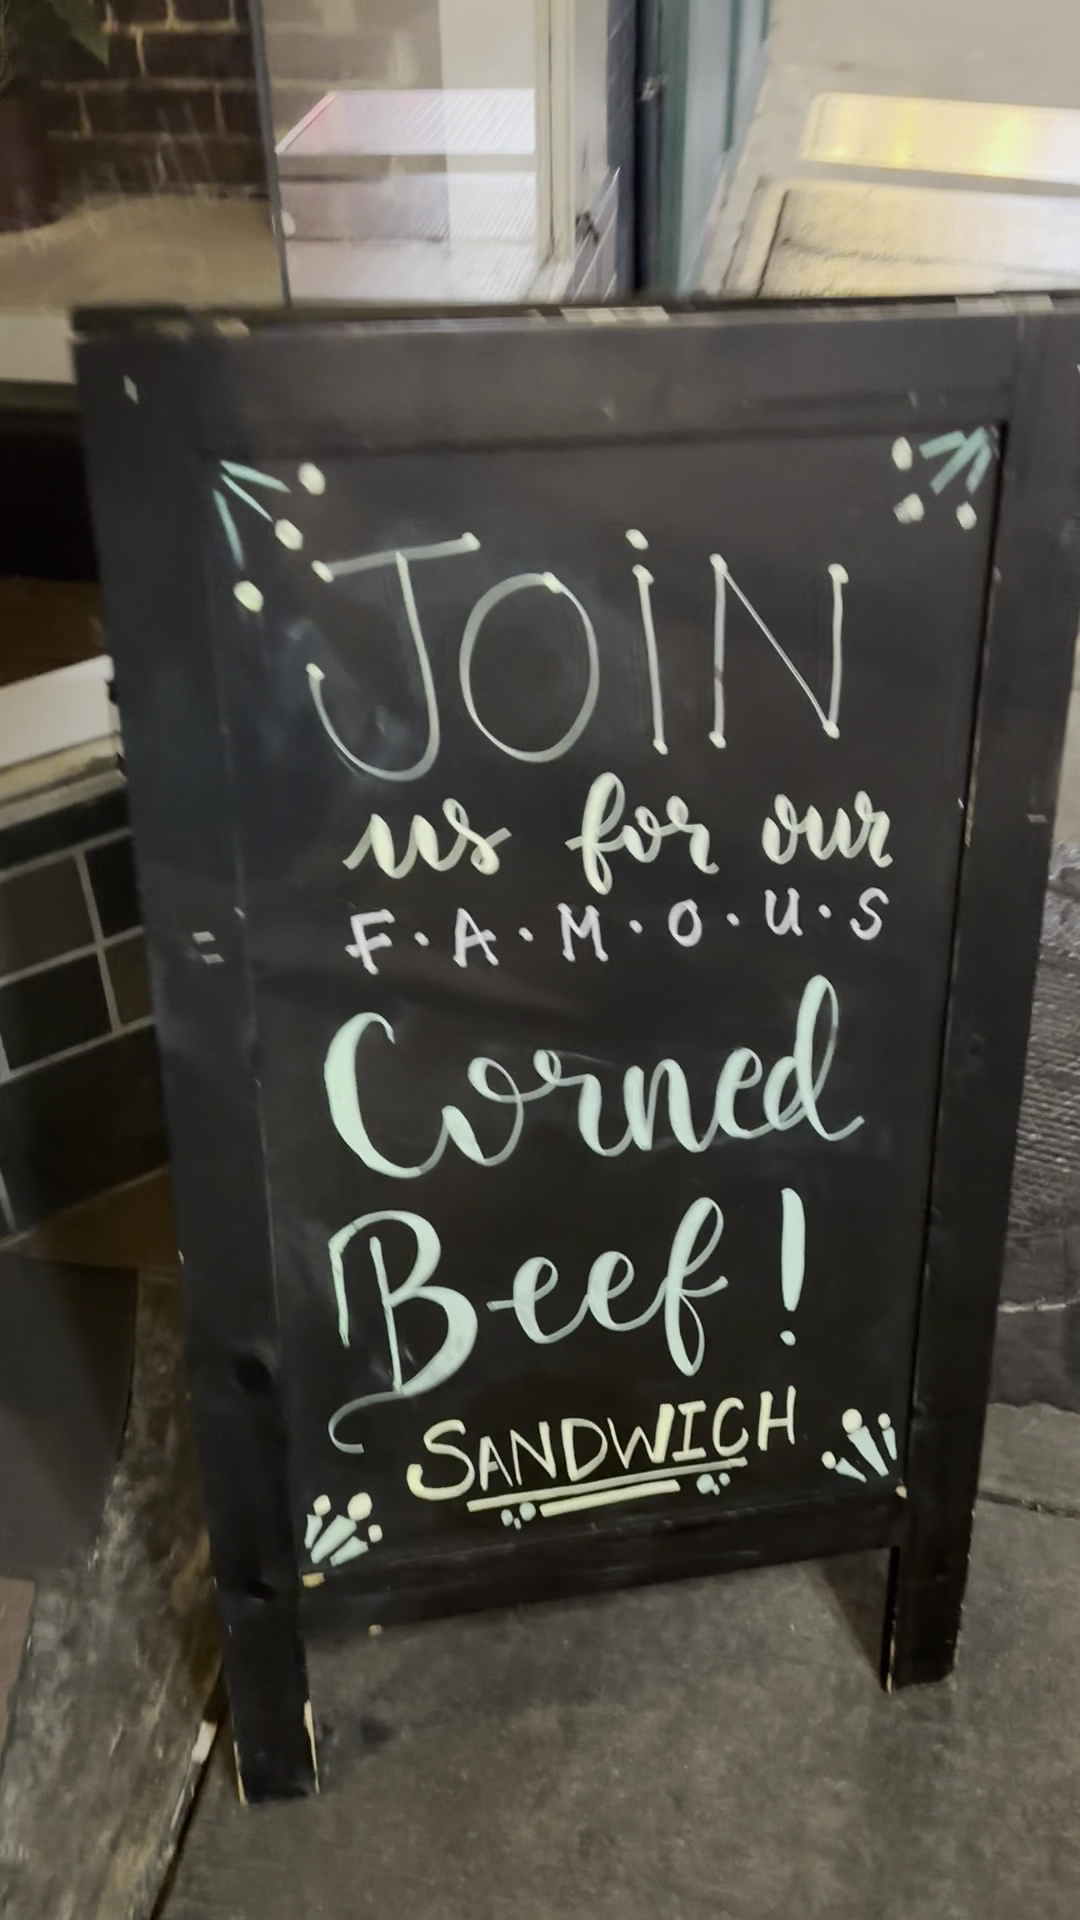 JOiN
us for our
F·A·M·O·U·S
Corned
Beef!
SANDWICH